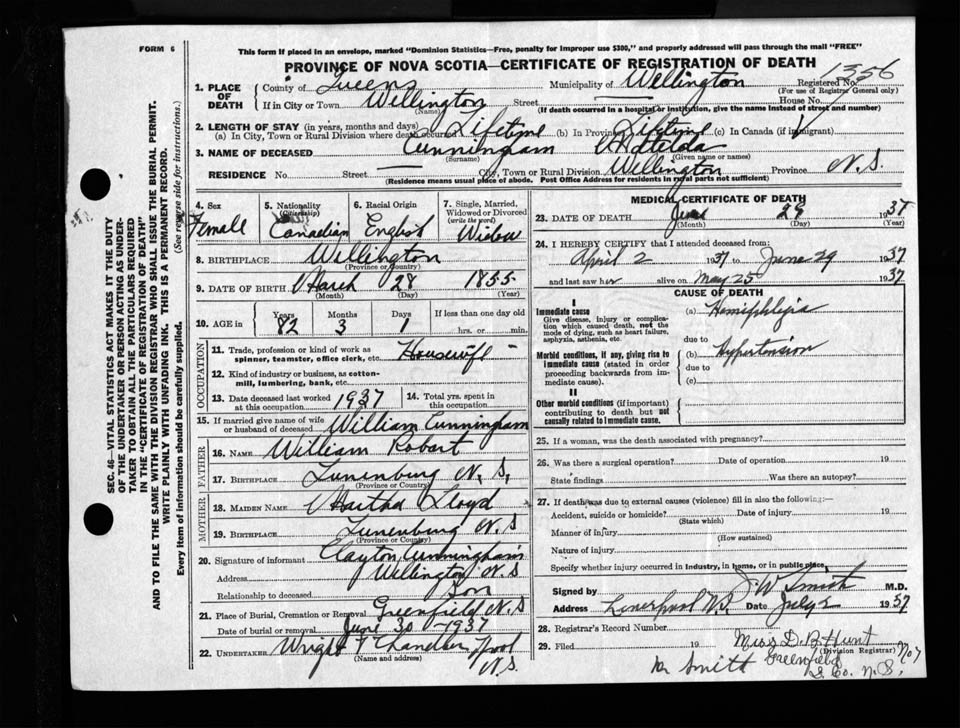 FORM 6
This form if placed in an envelope, marked "Dominion Statistics—Free, penalty for improper use $300," and properly addressed will pass through the mail "FREE"
PROVINCE OF NOVA SCOTIA—CERTIFICATE OF REGISTRATION OF DEATH
1. PLACE OF DEATH { County of Queens Municipality of Wellington Registered No. 1356
(For use of Registrar General only)
If in City or Town Wellington Street House No.
(Name) (If death occurred in a hospital or institution, give the name instead of street and number)
2. LENGTH OF STAY (in years, months and days)
(a) In City, Town or Rural Division where death occurred Lifetime (b) In Province Lifetime (c) In Canada (if immigrant)
3. NAME OF DECEASED Cunningham Matilda
(Surname) (Given name or names)
RESIDENCE No. Street City, Town or Rural Division Wellington Province N.S.
(Residence means usual place of abode. Post Office Address for residents in rural parts not sufficient)
SEC. 46—VITAL STATISTICS ACT MAKES IT THE DUTY
OF THE UNDERTAKER OR PERSON ACTING AS UNDER-
TAKER TO OBTAIN ALL THE PARTICULARS REQUIRED
IN THE "CERTIFICATE OF REGISTRATION OF DEATH"
AND TO FILE THE SAME WITH THE DIVISION REGISTRAR WHO SHALL ISSUE THE BURIAL PERMIT.
WRITE PLAINLY WITH UNFADING INK. THIS IS A PERMANENT RECORD.
Every item of information should be carefully supplied. (See reverse side for instructions.)
4. Sex Female
5. Nationality (Citizenship) Canadian
6. Racial Origin English
7. Single, Married, Widowed or Divorced (write the word) Widow
8. BIRTHPLACE Wellington
(Province or Country)
9. DATE OF BIRTH March 28 1855
(Month) (Day) (Year)
10. AGE in Years 82 Months 3 Days 1 If less than one day old hrs. or min.
OCCUPATION
11. Trade, profession or kind of work as spinner, teamster, office clerk, etc. Housewife
12. Kind of industry or business, as cotton-mill, lumbering, bank, etc.
13. Date deceased last worked at this occupation 1937 14. Total yrs. spent in this occupation
15. If married give name of wife or husband of deceased William Cunningham
FATHER
16. NAME William Robart
17. BIRTHPLACE Lunenburg N.S.
(Province or Country)
MOTHER
18. MAIDEN NAME Martha Lloyd
19. BIRTHPLACE Lunenburg N.S
(Province or Country)
20. Signature of informant Clayton Cunningham
Address Wellington N.S
Relationship to deceased Son
21. Place of Burial, Cremation or Removal Greenfield N.S
Date of burial or removal June 30 1937
22. UNDERTAKER Wright T Chandler N.S.
(Name and address)
MEDICAL CERTIFICATE OF DEATH
23. DATE OF DEATH June 29 1937
(Month) (Day) (Year)
24. I HEREBY CERTIFY that I attended deceased from:
April 2 1937 to June 29 1937
and last saw her alive on May 25 1937
CAUSE OF DEATH
I
Immediate cause
Give disease, injury or complication which caused death, not the mode of dying, such as heart failure, asphyxia, asthenia, etc.
(a) Hemiphlegia
due to
Morbid conditions, if any, giving rise to immediate cause (stated in order proceeding backwards from immediate cause).
(b) Hypertension
due to
(c)
II
Other morbid conditions (if important) contributing to death but not causally related to immediate cause.
25. If a woman, was the death associated with pregnancy?
26. Was there a surgical operation? Date of operation 19
State findings Was there an autopsy?
27. If death was due to external causes (violence) fill in also the following:—
Accident, suicide or homicide? Date of injury 19
(State which)
Manner of injury
(How sustained)
Nature of injury
Specify whether injury occurred in industry, in home, or in public place
Signed by J W Smith M.D.
Address Liverpool N.S. Date July 2 1937
28. Registrar's Record Number
29. Filed 19 Miss D. B. Hunt
(Division Registrar)
Smith Greenfield
Q. Co. N.S.